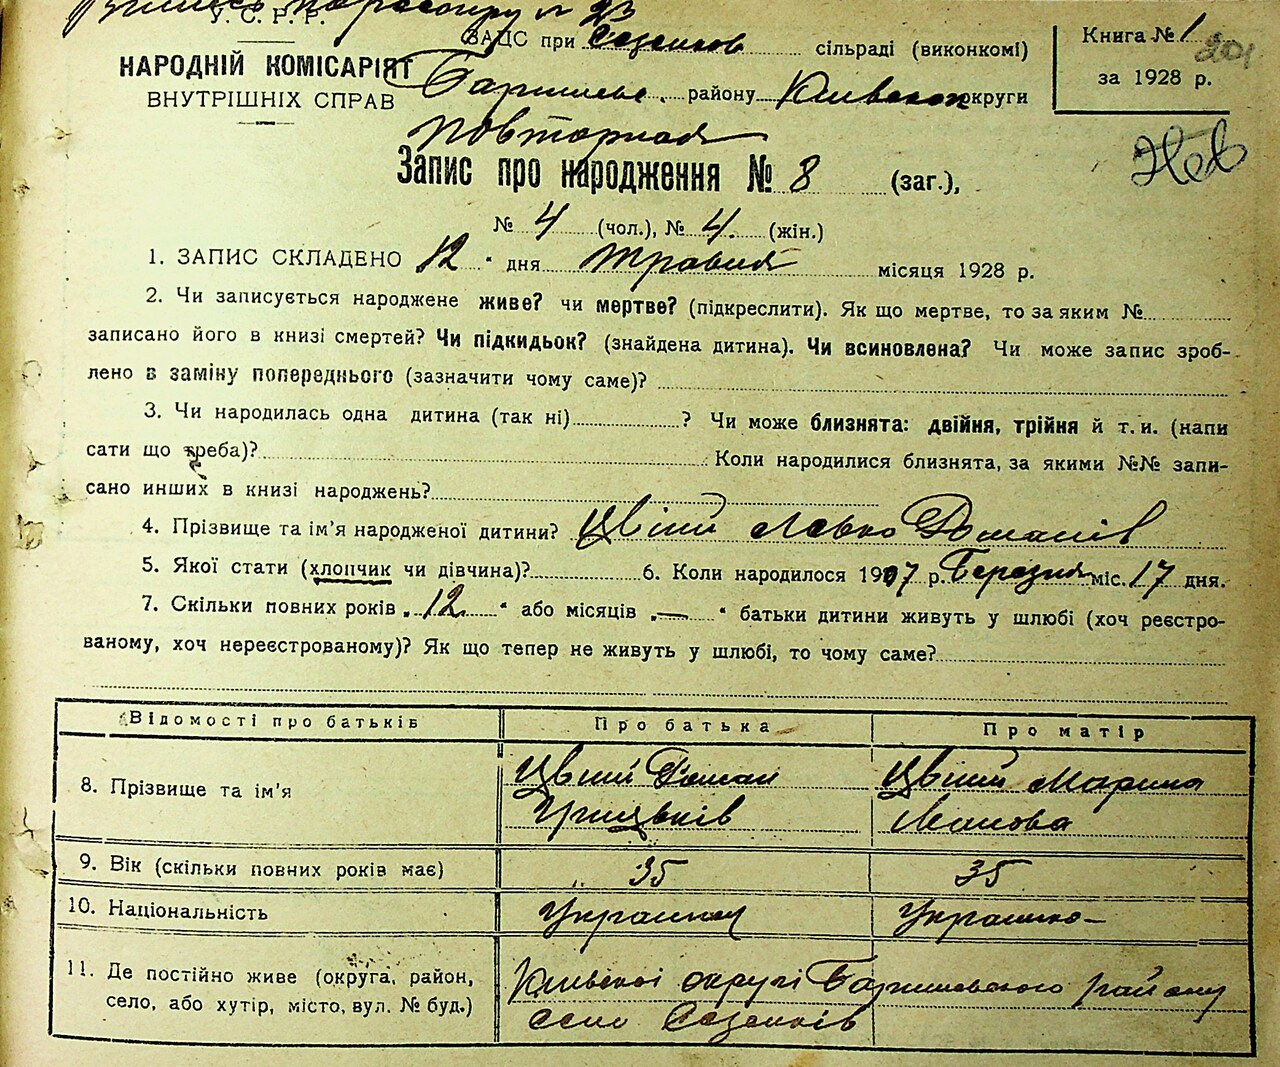 У. С. Р. Р.
ЗАЦС при Сезенков сільраді (виконкомі)
Книга № 1
201
НАРОДНІЙ КОМІСАРІЯТ
ВНУТРІШНІХ СПРАВ
району Київської округи
за 1928 р.
повторная
Запис про народження № 8 (заг.),
№ 4 (чол.), № 4. (жін.)
1. ЗАПИС СКЛАДЕНО 12 " дня Травня місяця 1928 р.
2. Чи записується народжене живе? чи мертве? (підкреслити). Як що мертве, то за яким №
записано його в книзі смертей? Чи підкидьок? (знайдена дитина). Чи всиновлена? Чи може запис зроб-
лено в заміну попереднього (зазначити чому саме)?
3. Чи народилась одна дитина (так ні) ? Чи може близнята: двійня, трійня й т. и. (напи
сати що треба)? Коли народилися близнята, за якими №№ запи-
сано инших в книзі народжень?
4. Прізвище та ім'я народженої дитини? Цвіий Левко Романів
5. Якої стати (хлопчик чи дівчина)? 6. Коли народилося 1917 р. Березня міс. 17 дня.
7. Скільки повних років „ 12 " або місяців „ — " батьки дитини живуть у шлюбі (хоч реєстро-
ваному, хоч нереєстрованому)? Як що тепер не живуть у шлюбі, то чому саме?
Відомості про батьків Про батька Про матір
8. Прізвище та ім'я Цвіий Роман Грицьків Цвіий Марина Іванова
9. Вік (скільки повних років має) 35 35
10. Національність Украинец Украинка
11. Де постійно живе (округа, район, Київскої округі Баришовского району
село, або хутір, місто, вул. № буд.) село Сезенків